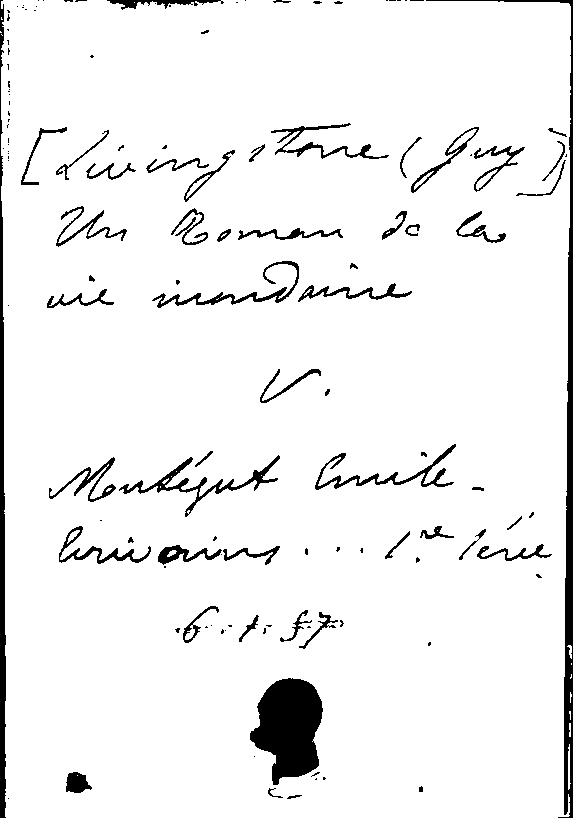 [Livingstone (Guy)]
Un Roman de la
vie mondaine
V.
Montégut Emile -
Ecrivains ... 1.re série
6.1.57